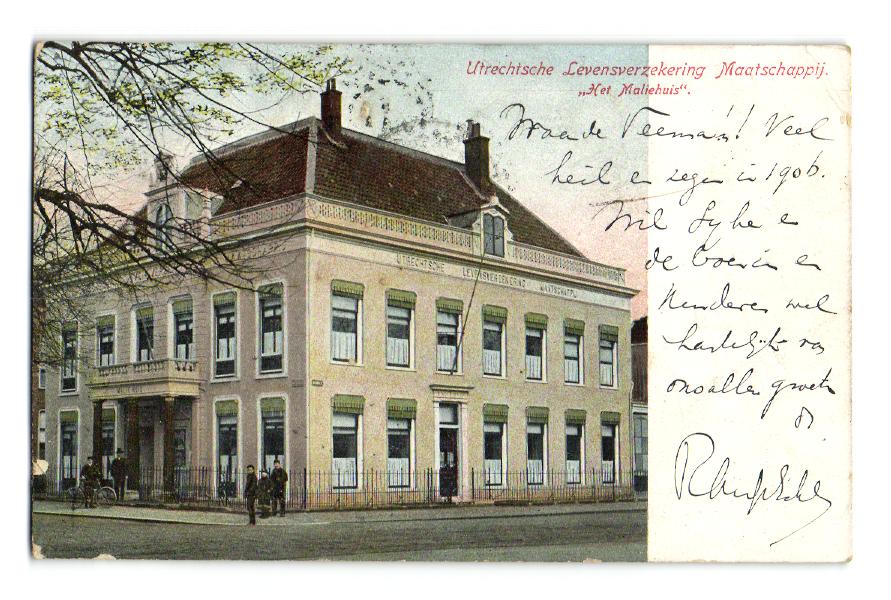 Utrechtsche Levensverzekering Maatschappij.
„Het Maliehuis“.
Waarde Veeman! Veel
heil en zegen in 1906.
Wil Sijke en
de Boerin en
Kinderen wel
hartelijk van
ons allen groeten
UTRECHTSCHE LEVENSVERZEKERING MAATSCHAPPIJ